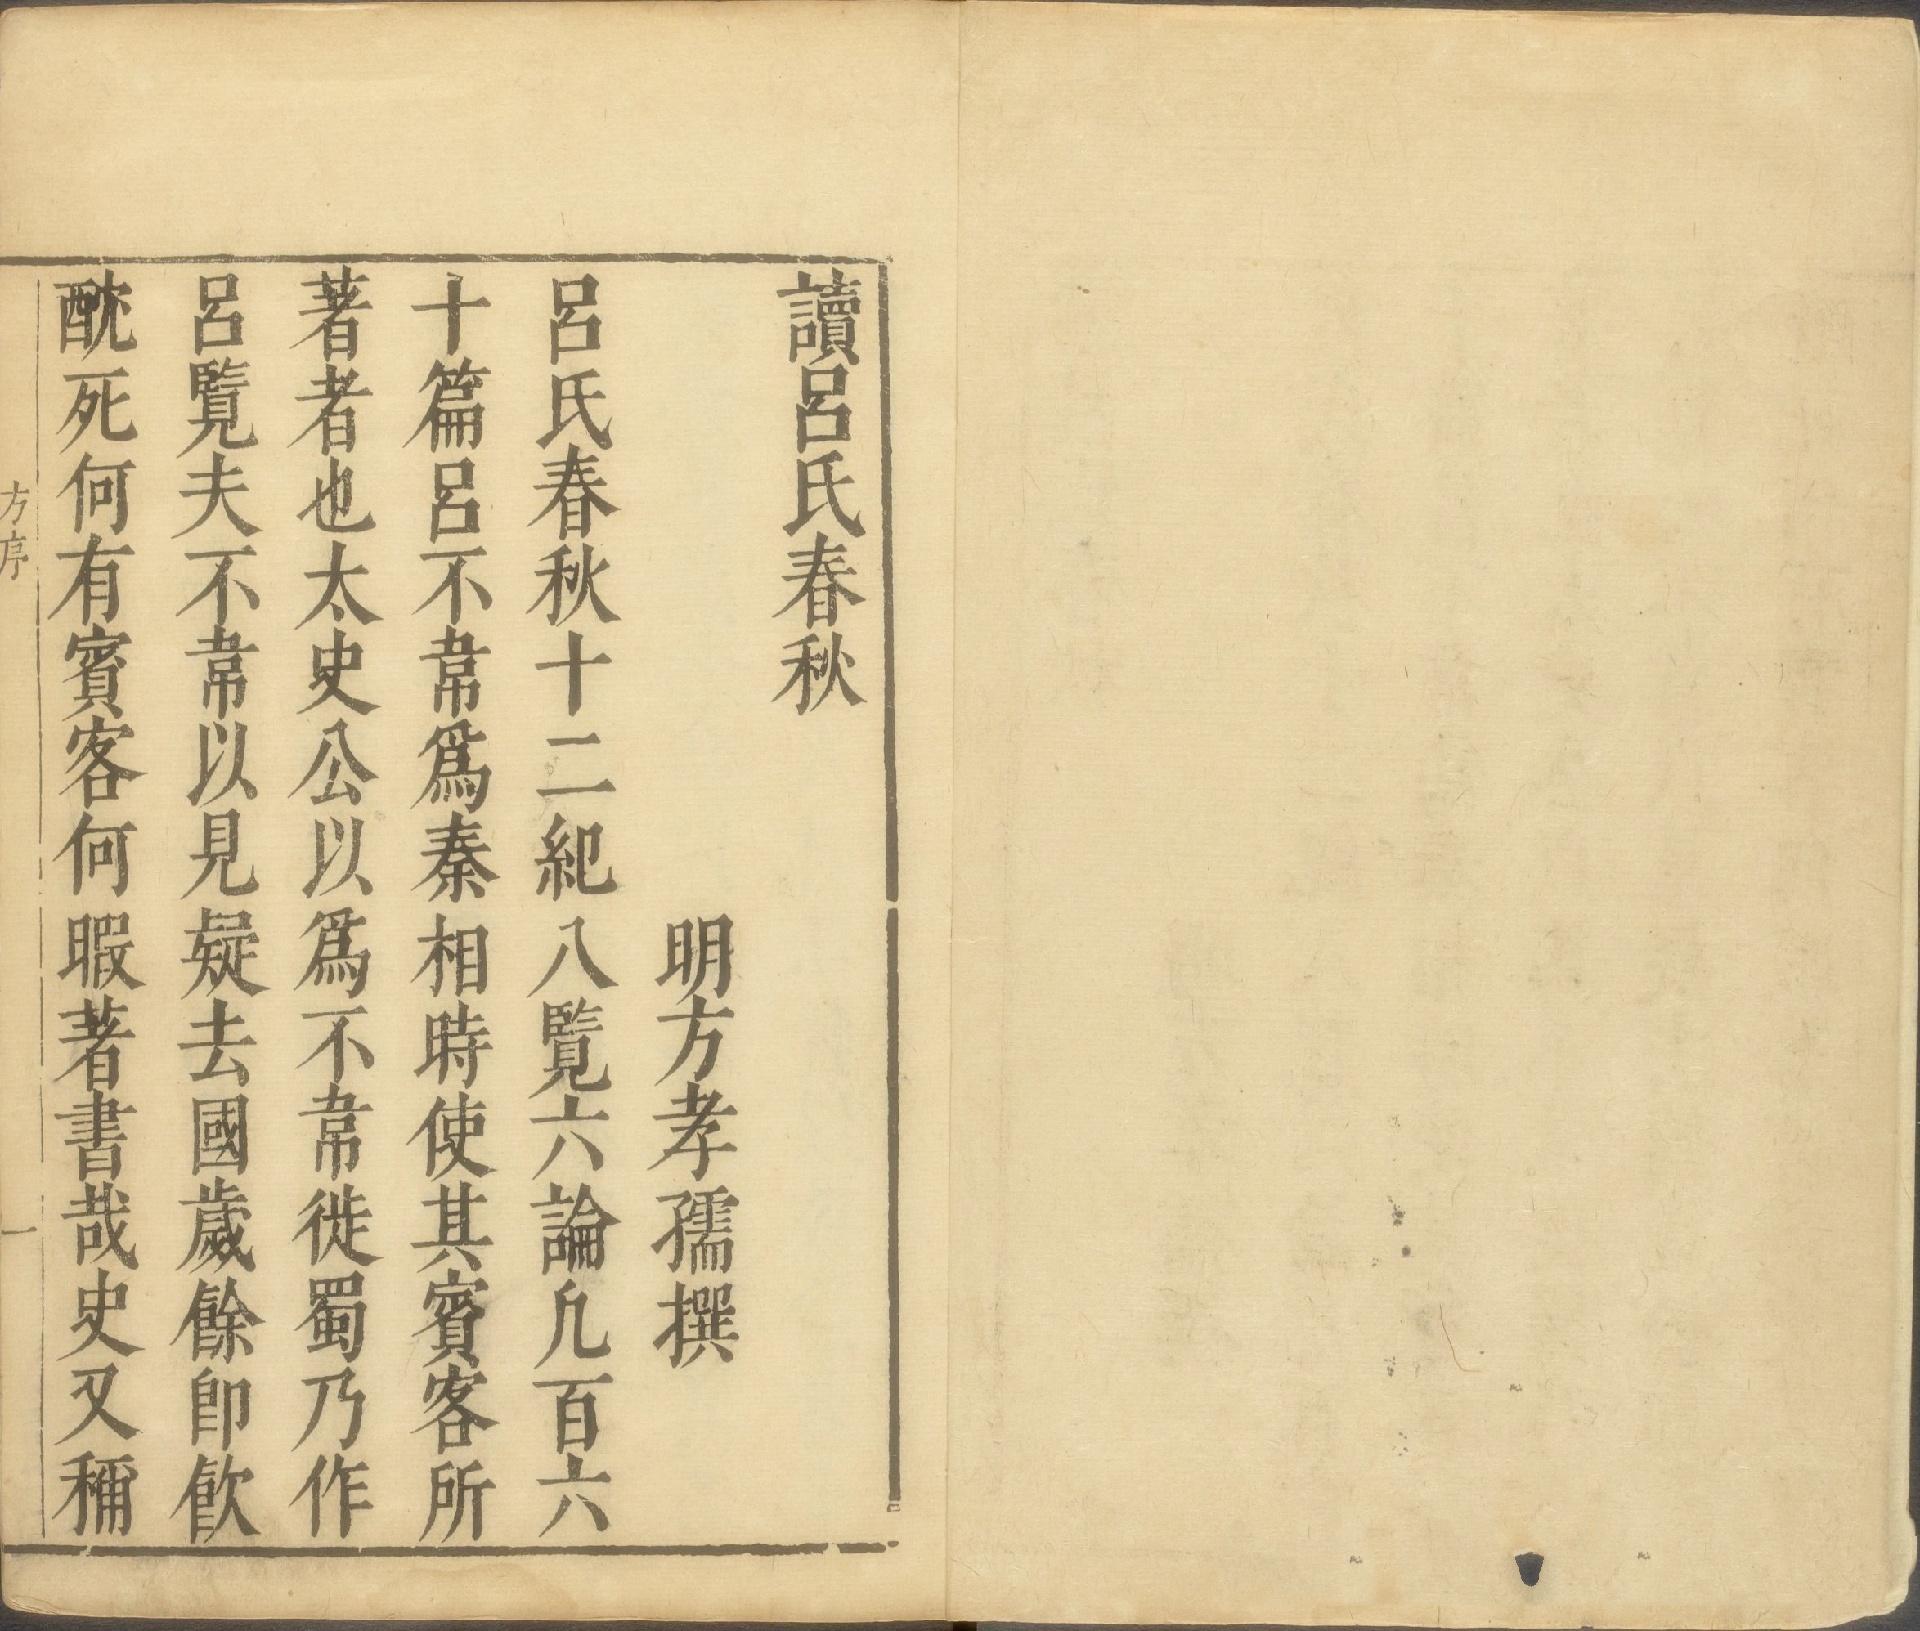 讀呂氏春秋
明方孝孺撰
呂氏春秋十二紀八覽六論凢百六
十篇呂不韋爲秦相時使其賓客所
著者也太史公以爲不韋徙蜀乃作
呂覽夫不韋以見疑去國歲餘卽飮
酖死何有賓客何暇著書哉史又稱
方序
一